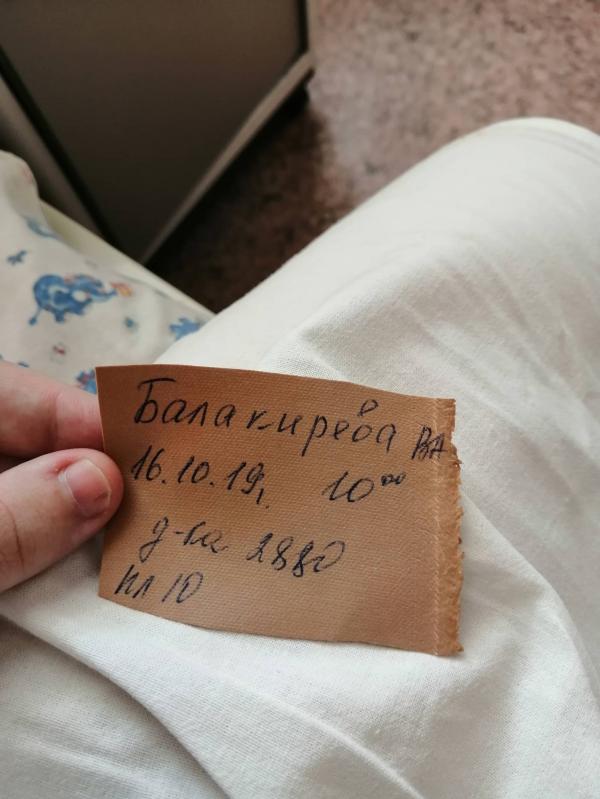 Балакирева ВА
16.10.19г. 10⁰⁰
д-ка 2880
пл 10